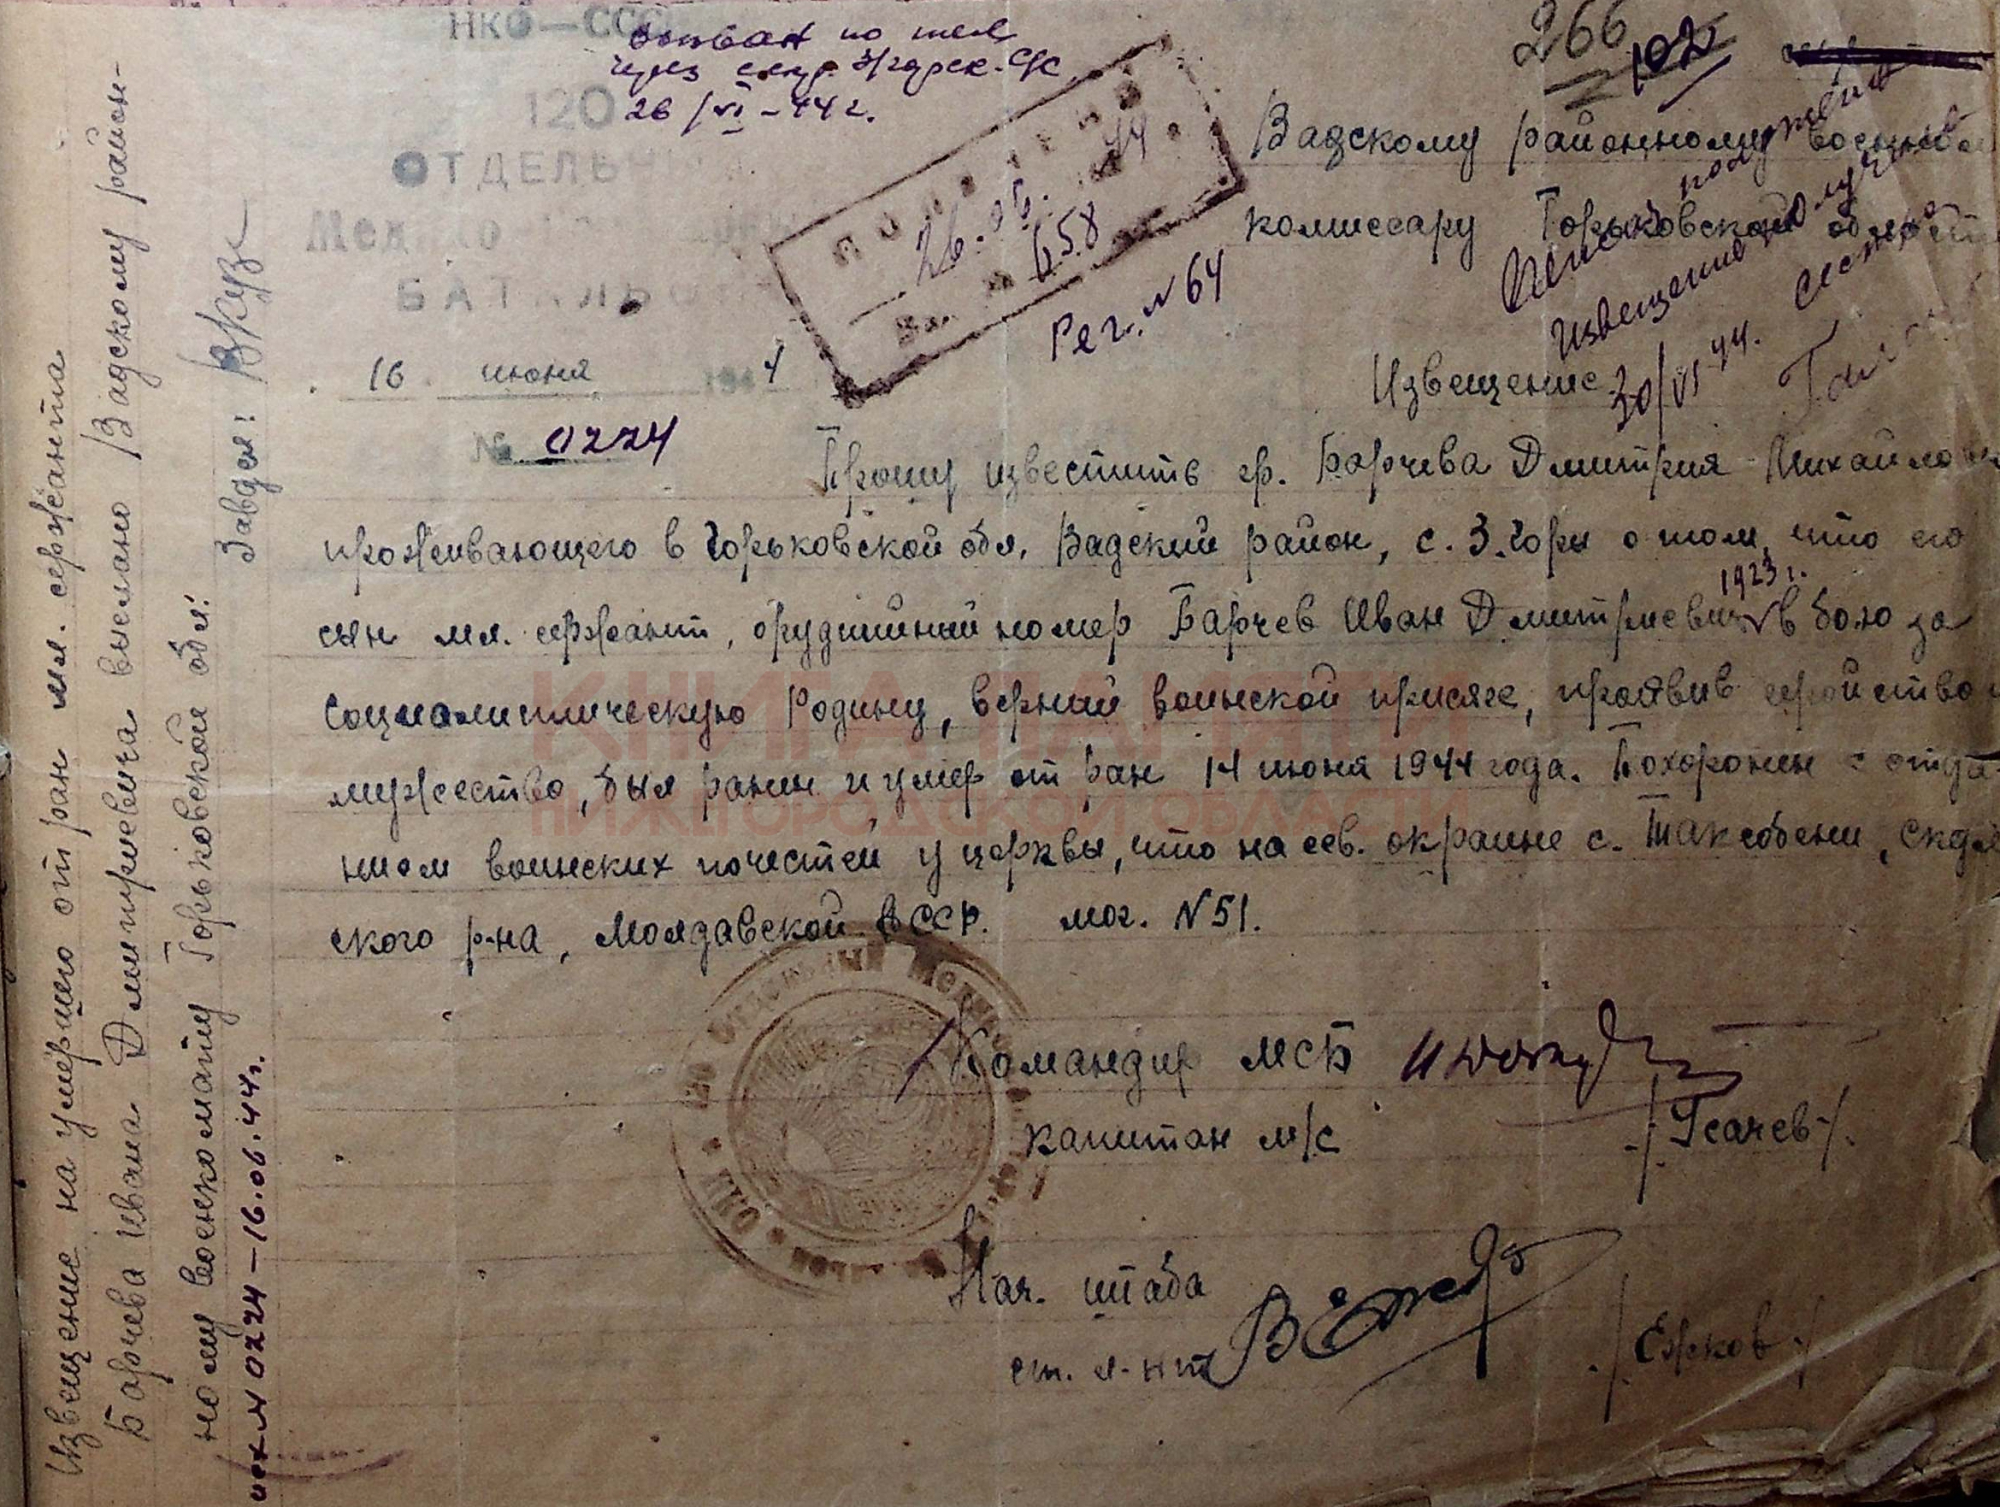 НКО—СССР
120
ОТДЕЛЬН
БАТАЛЬОН
16 июня 1944
№ 0224
вызван по тел
через секр.
26/VI-44г.
ПОЛУЧЕНО
26.06. 44
Вх. № 658
Рег. № 64
266
102
Вадскому районному военному
комиссару Горьковской области
извещение получил
30/VI-44. сестра
Извещение
Прошу известить гр. Барчева Дмитрия Михайлов
проживающего в Горьковской обл. Вадский район, с. З.Горы о том, что его
1923 г.
сын мл. сержант, орудийный номер Барчев Иван Дмитриевич в бою за
социалистическую Родину, верный воинской присяге, проявив геройство и
мужество, был ранен и умер от ран 14 июня 1944 года. Похоронен с отда-
нием воинских почестей у церквы, что на сев. окраине с. Таксобени, Скуля
ского р-на, Молдавской АССР. мог. N 51.
120 Отдельный Медико
НКО
Командир МСБ
капитан м/с /Усачев/.
Нач. штаба
ст. л-нт /Ежков/
Извещение на умершего от ран мл. сержанта
Барчева Ивана Дмитриевича выслано Вадскому район-
ному военкомату Горьковской обл.
исх N 0224 — 16.06.44г.
Завдел:
КНИГА ПАМЯТИ
НИЖЕГОРОДСКОЙ ОБЛАСТИ